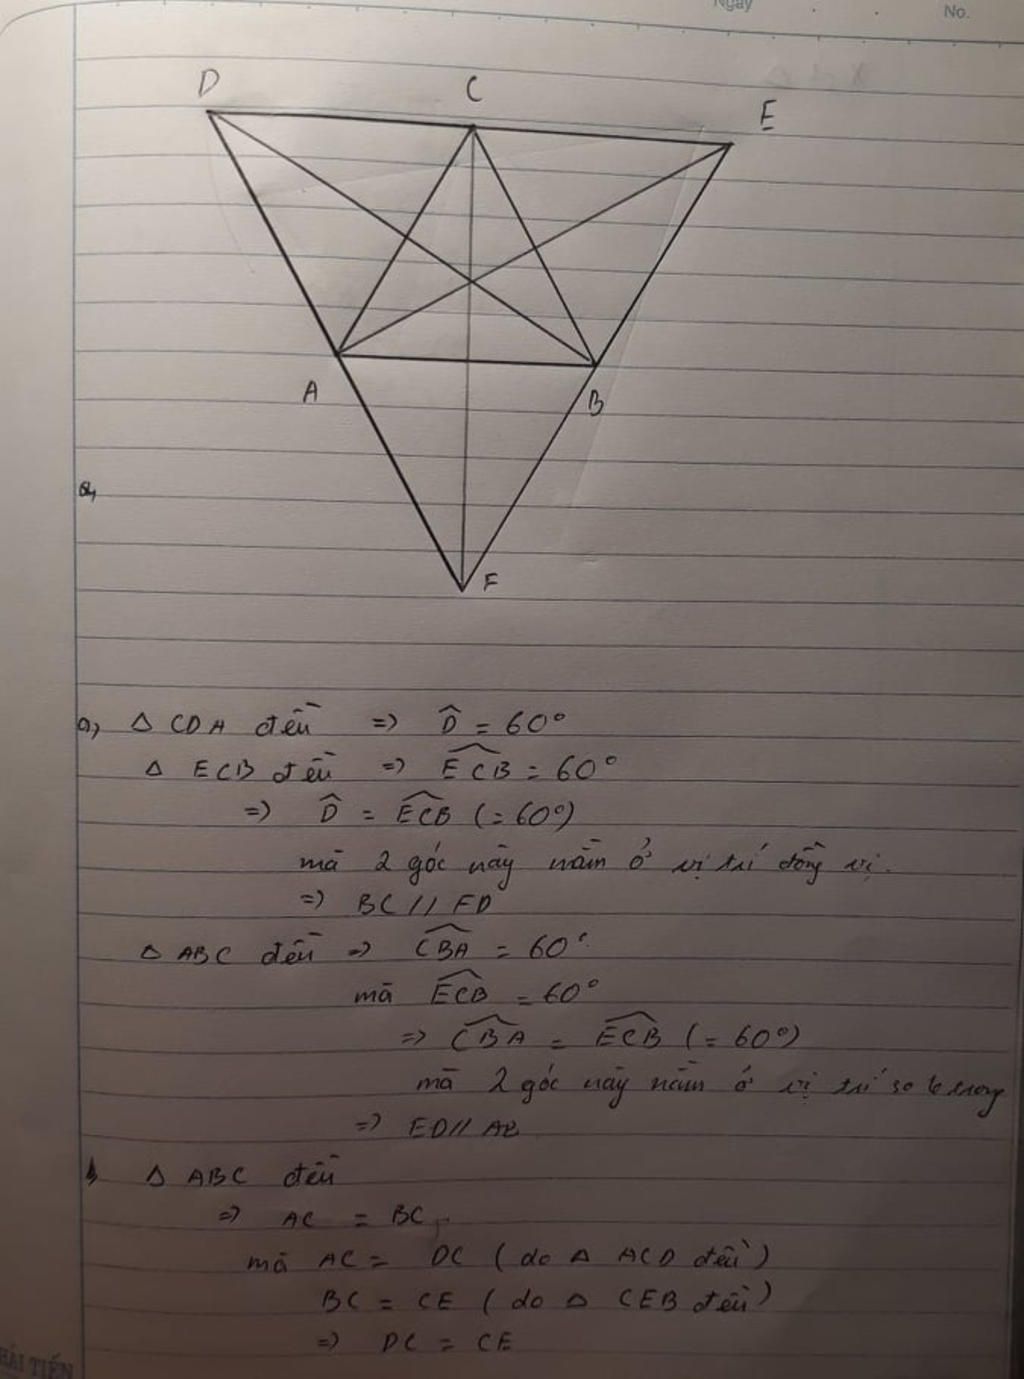 Ngày
No.
D
C
E
A
B
F
a,
a, △ CDA đều => D̂ = 60°
△ ECB đều => ECB̂ = 60°
=> D̂ = ECB̂ (= 60°)
mà 2 góc này nằm ở vị trí đồng vị.
=> BC // FD
△ ABC đều => CBÂ = 60°
mà ECB̂ = 60°
=> CBÂ = ECB̂ (= 60°)
mà 2 góc này nằm ở vị trí so le trong
=> ED // AB
b △ ABC đều
=> AC = BC
mà AC = DC (do △ ACD đều)
BC = CE (do △ CEB đều)
=> DC = CE
HẢI TIẾN